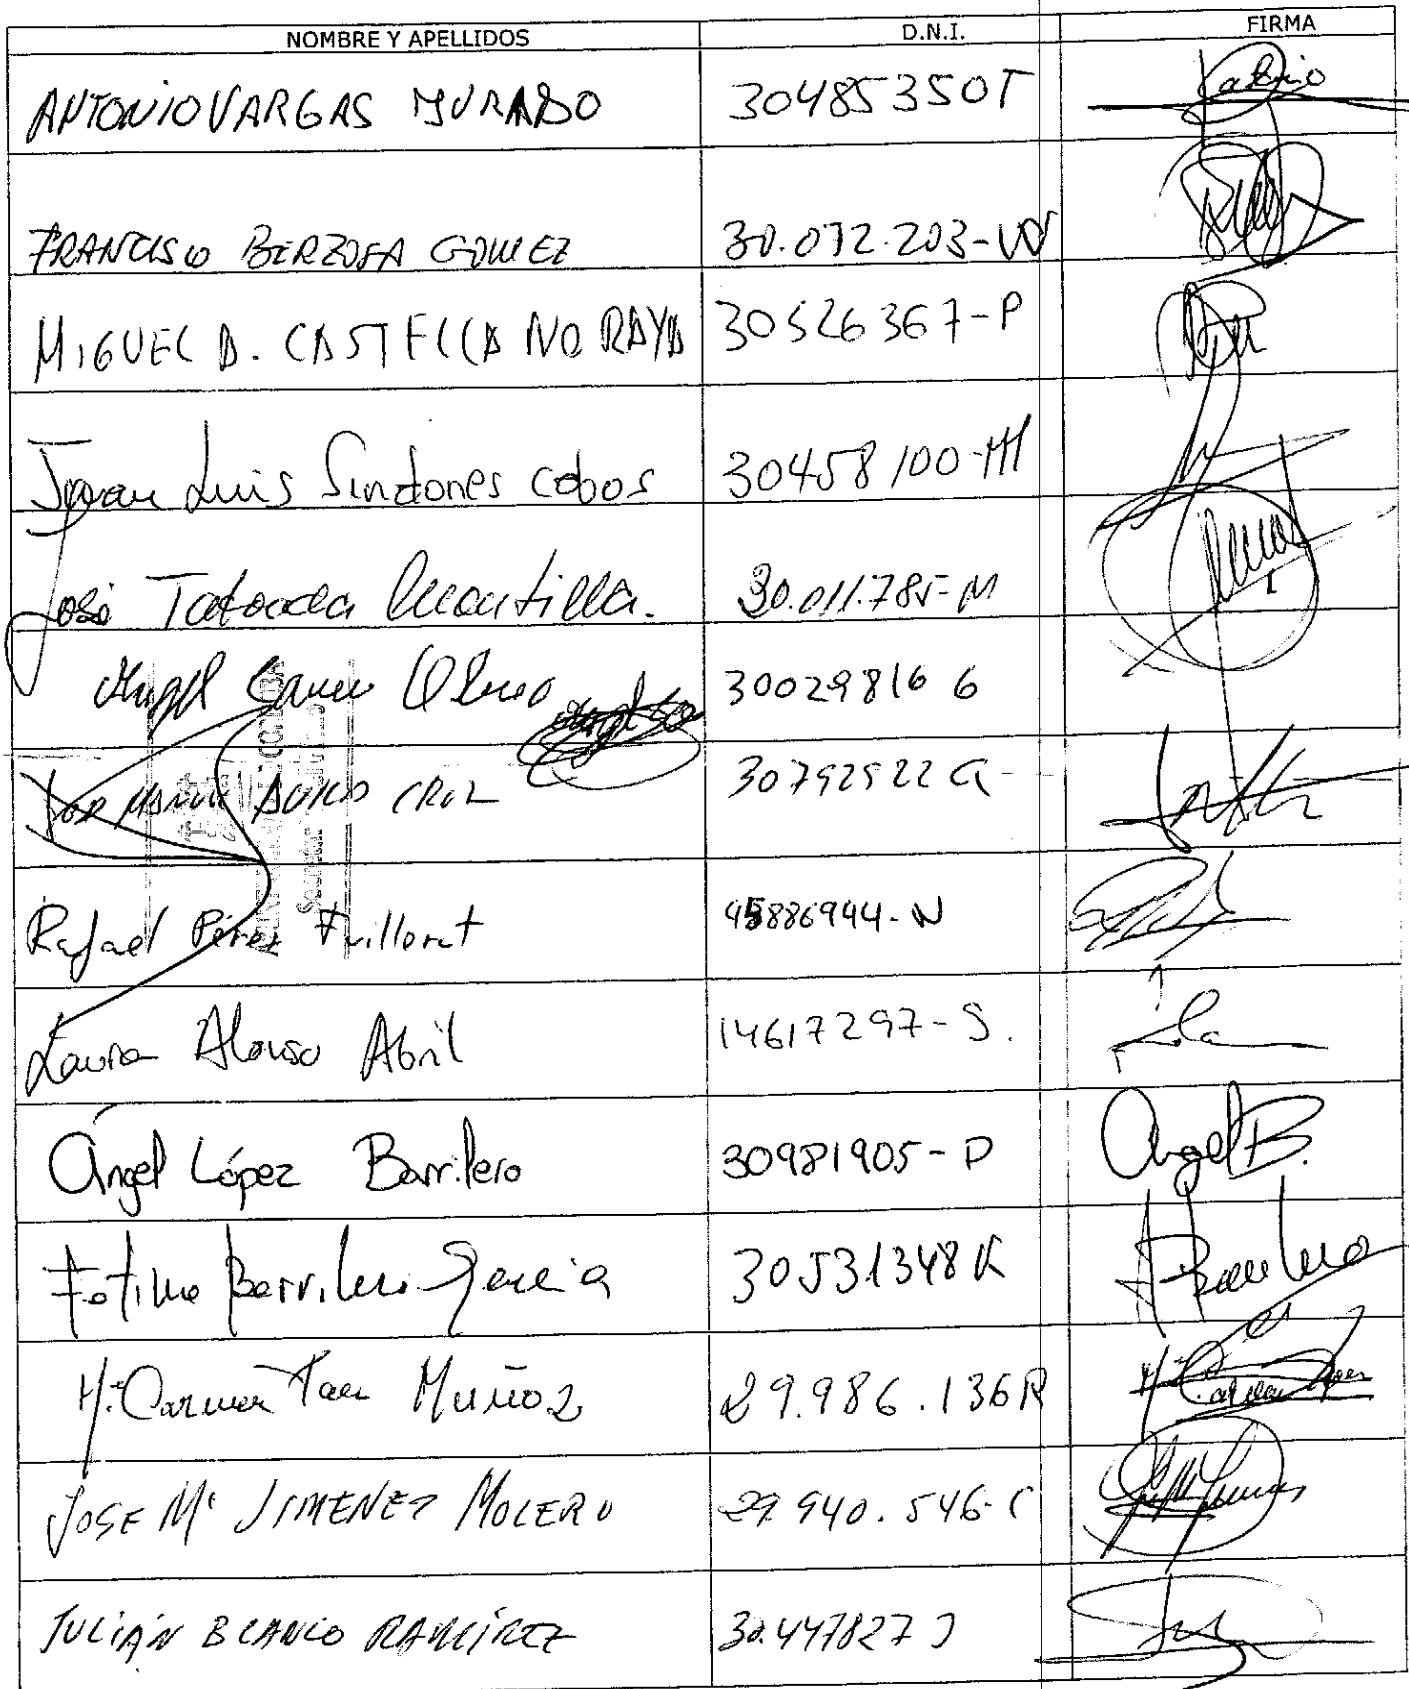 NOMBRE Y APELLIDOS D.N.I. FIRMA
ANTONIO VARGAS JURADO 30485350T
FRANCISCO BERZOSA GOMEZ 30.072.203-W
MIGUEL A. CASTELLANO RAYA 30526367-P
Juan Luis Cobos 30458100-M
José Mantilla. 30.011.785-M
Angel 30029816 G
CRUZ 30792922 G
Rafael Pérez 45886944-N
Laura Alonso Abril 14617297-S.
Ángel López Barrilero 30981905-P Angel B.
Fátima Barrilero García 30531348K
Mª Carmen Muñoz 29.986.136R
JOSE Mª JIMENEZ MOLERO 29.940.546-C
JULIÁN BLANCO RAMÍREZ 30.447827 J